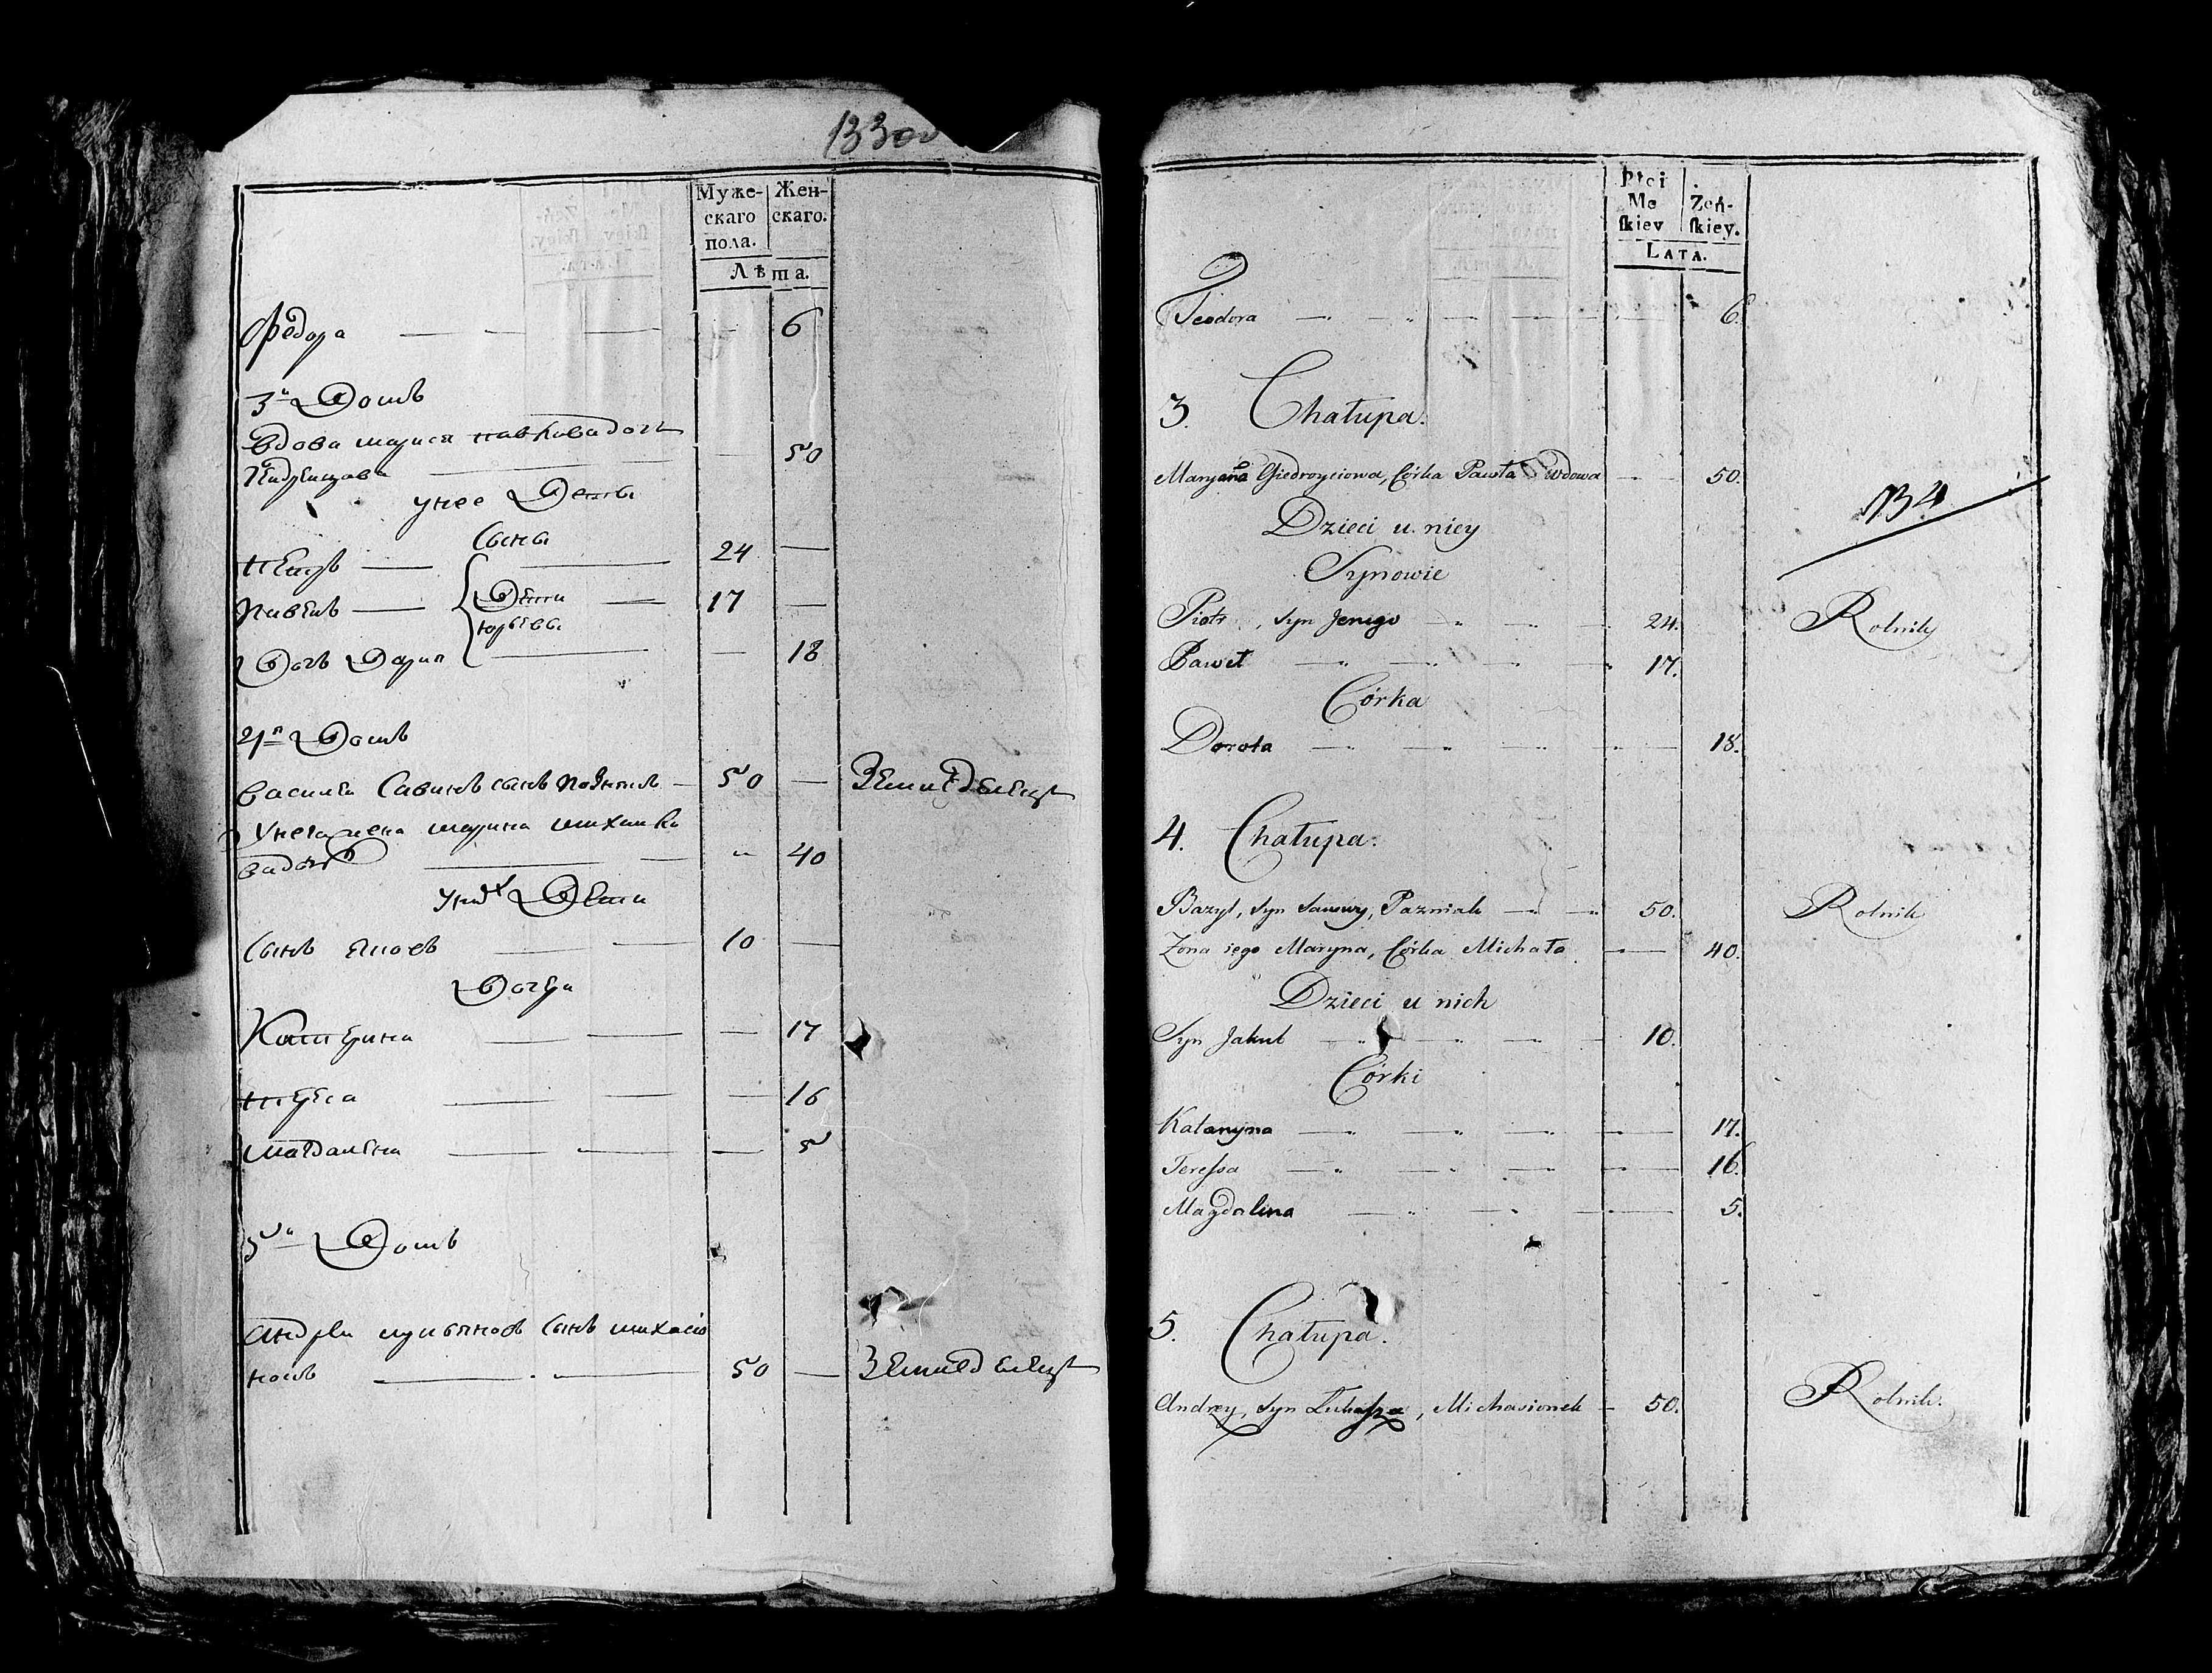 133об
Муже-
скаго
пола.
Жен-
скаго.
Лѣта.
Федора 6
3й Домъ
Вдова Марья Павлова дочь
50
у нее Дети
Сыны
Петръ 24
Павелъ Дети 17
Юрьевы
Дочь Дарья 18
4й Домъ
Василей Савинъ сынъ 50 Земледелецъ
У него жена Марина Михайло
ва дочь " 40
У них Дети
Сынъ Яковъ 10
Дочери
Катерина 17
Тереса 16
Магдалена 5
5й Домъ
Андрей Лукьяновъ сынъ Михасio
нокъ 50 Земледелецъ
Płci
Mę
ſkiey
Żeń-
ſkiey.
LATA.
Teodora 6.
3. Chałupa.
Maryana Giedroyciowa, Córka Pawła Wdowa 50.
134
Dzieci u niey
Synowie
Piotr, Syn Jerzego 24. Rolnik
Paweł 17.
Córka
Dorota 18.
4. Chałupa.
Bazyl, Syn Sawwy, Pazniak 50. Rolnik
Żona iego Maryna, Córka Michała 40.
Dzieci u nich
Syn Jakub 10.
Córki
Kataryna 17.
Tereſsa 16.
Magdalina 5.
5. Chałupa.
Andrzey, Syn Łukaſza, Michasionek 50. Rolnik.